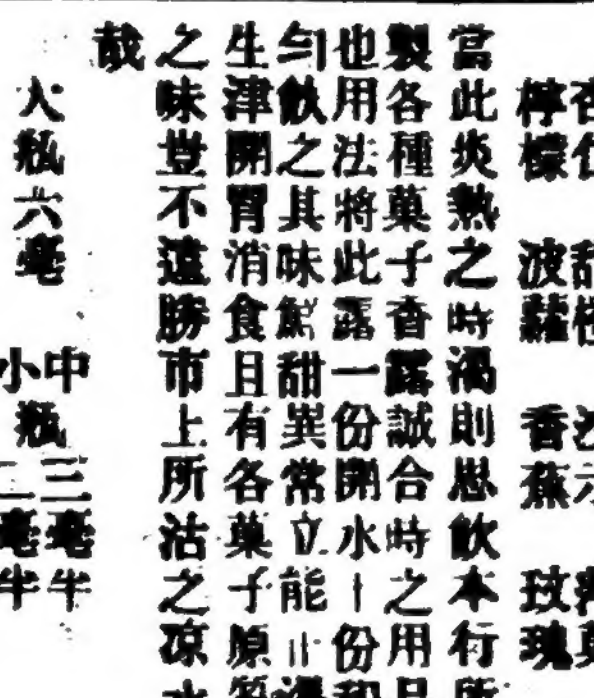 檸檬 波蘿 香蕉 玫瑰
當此炎熱之時渴則思飲本行所
製各種菓子香露誠合時之用品
也用法將此露一份開水十份和
勻飲之其味甜異常立能止渴
生津開胃消食且有各菓子原質
之味豈不遠勝市上所沽之凉水
哉
中 三毫半
大瓶六毫 瓶
小 二毫半